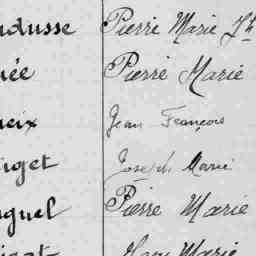 ndusse Pierre Marie Jh
née Pierre Marie
neix Jean François
iget Joseph Marie
guel Pierre Marie
Marie